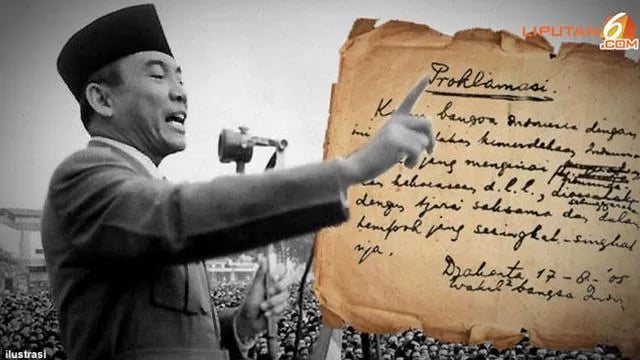 LIPUTAN 6
.COM
Proklamasi.
bangsa Indonesia dengan
ini kemerdekaan
jang mengenai
kekoeasaan d.l.l.,
dengan tjara saksama dan dalam
tempoh jang sesingkat-singkat
nja.
Djakarta, 17-8-'05
wakil2 bangsa
ilustrasi